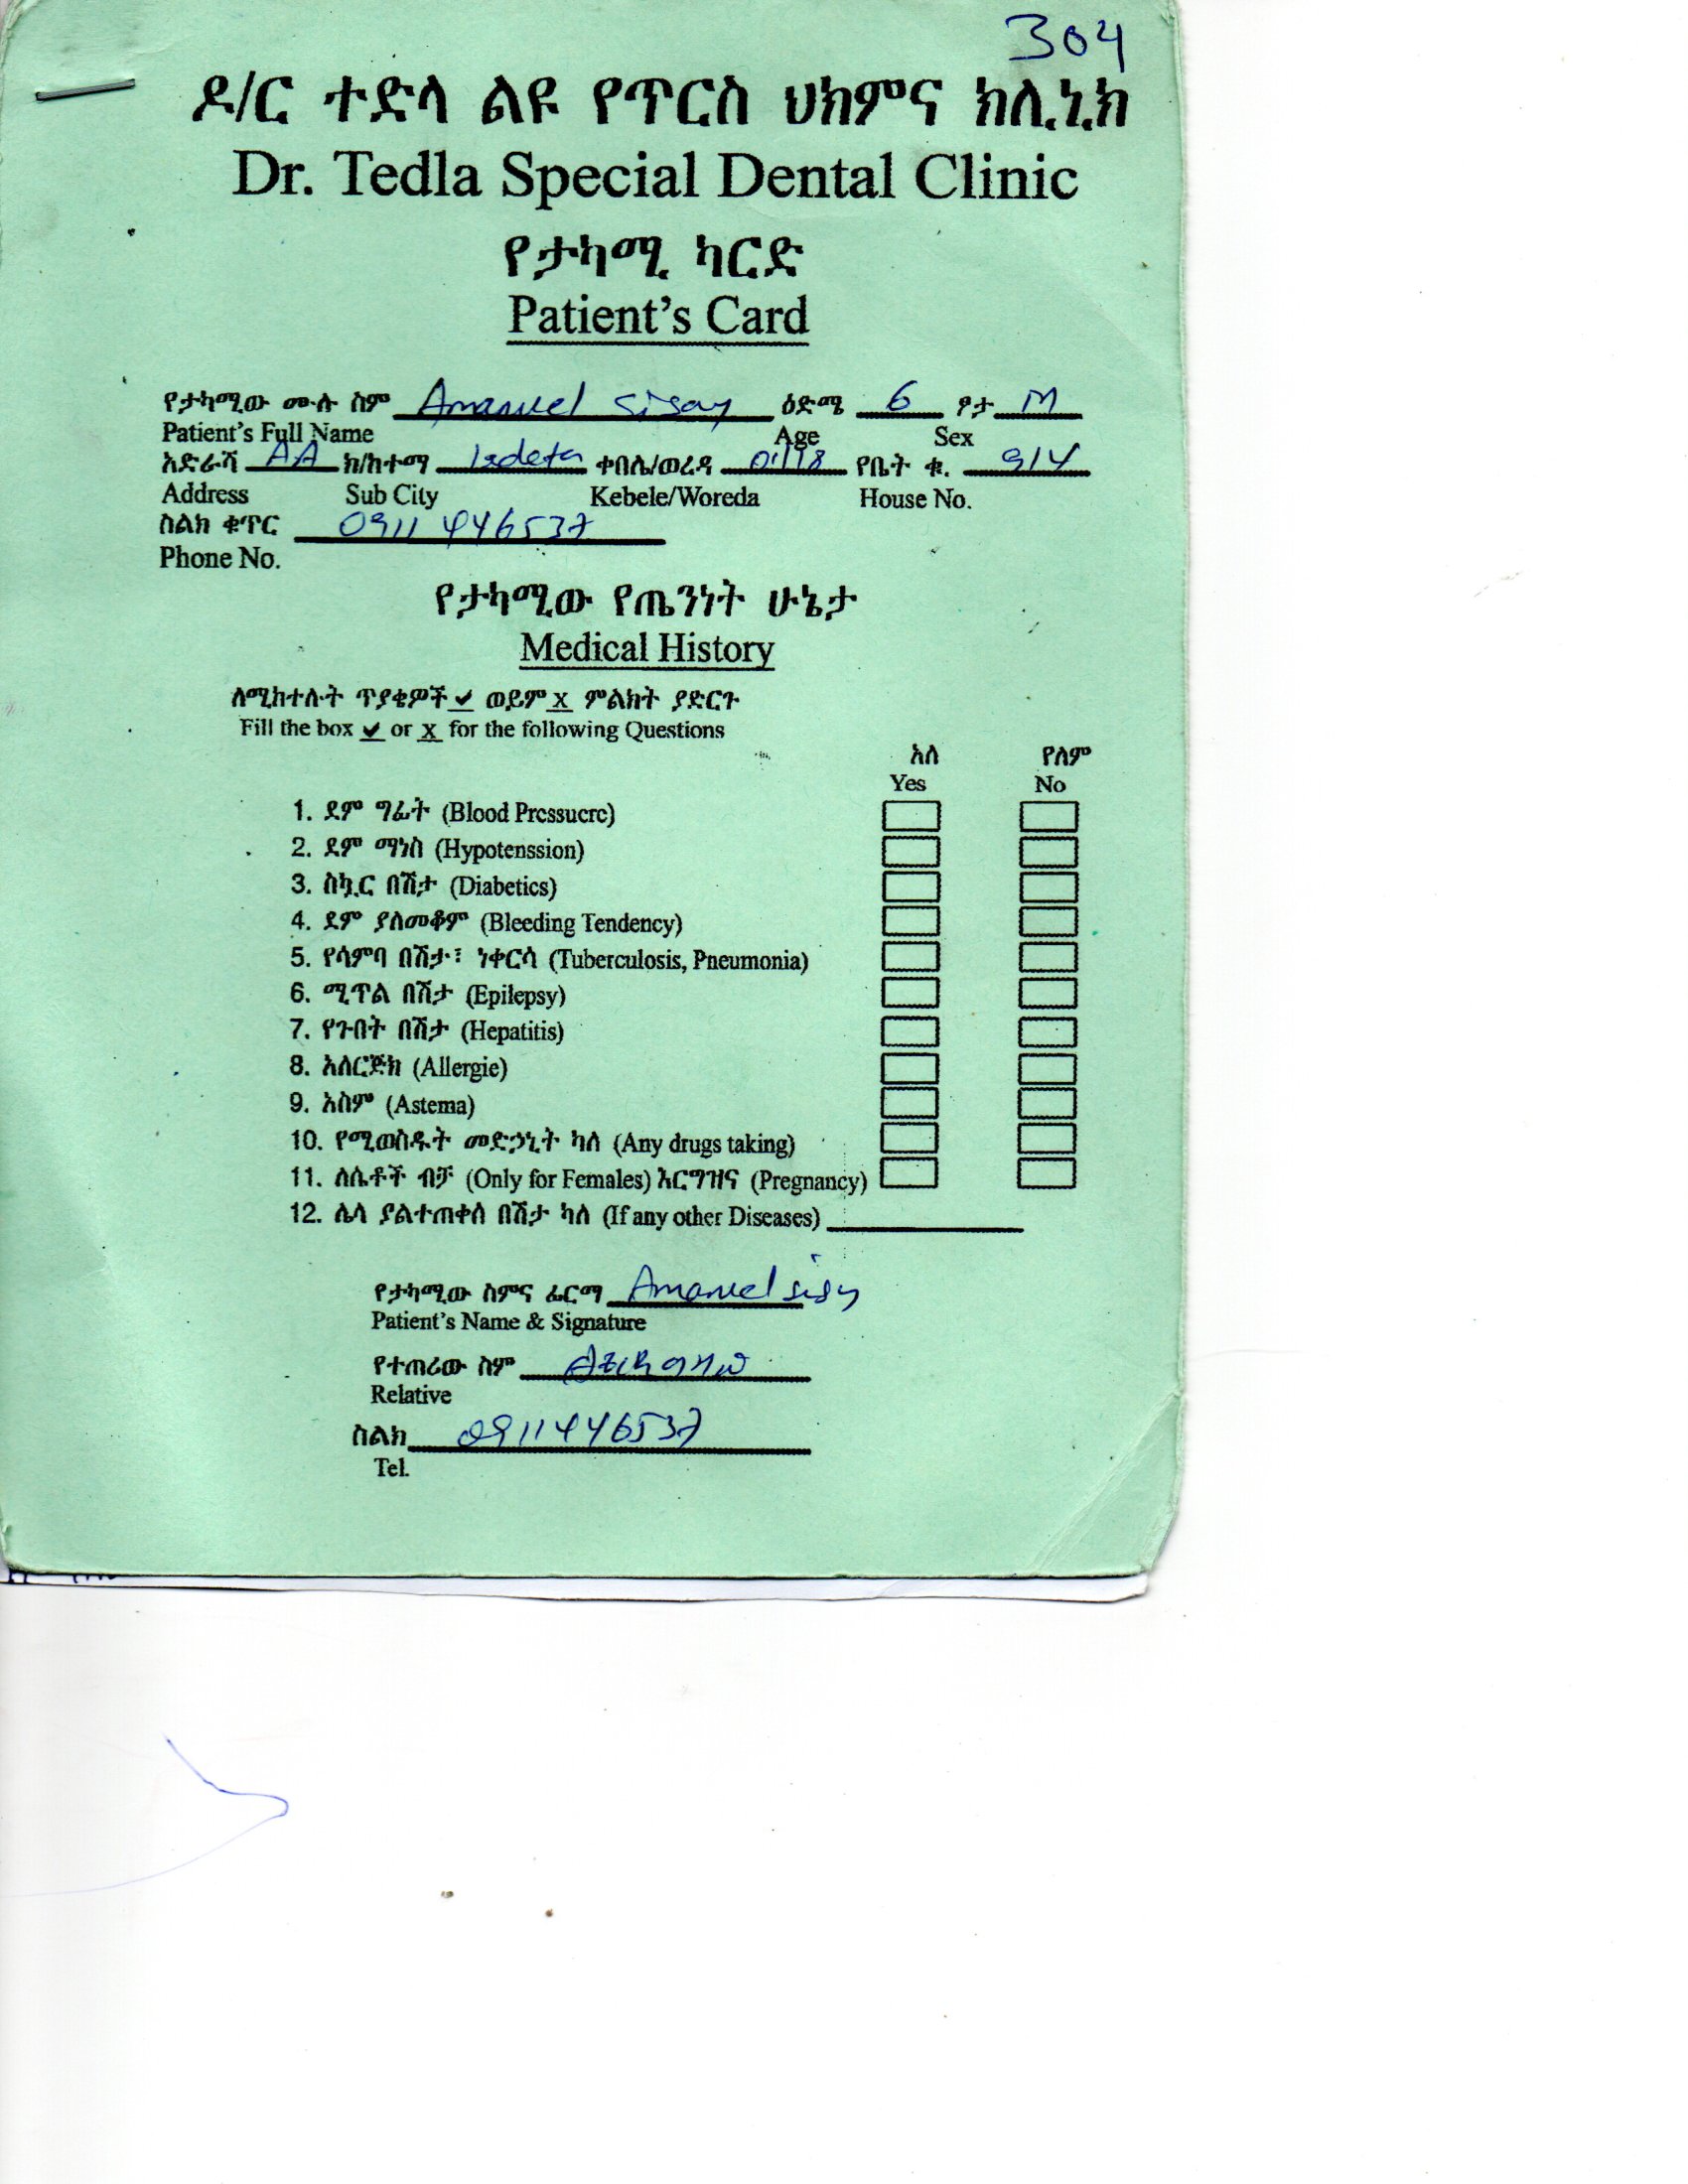 304
ዶ/ር ተድላ ልዩ የጥርስ ህክምና ክሊኒክ
Dr. Tedla Special Dental Clinic
የታካሚ ካርድ
Patient's Card
የታካሚው ሙሉ ስም Amanuel Sisay ዕድሜ 6 ፆታ M
Patient's Full Name Age Sex
አድራሻ AA ክ/ከተማ Ledeta ቀበሌ/ወረዳ የቤት ቁ. 914
Address Sub City Kebele/Woreda House No.
ስልክ ቁጥር 0911 446537
Phone No.
የታካሚው የጤንነት ሁኔታ
Medical History
ለሚከተሉት ጥያቄዎች ✔ ወይም x ምልክት ያድርጉ
Fill the box ✔ or x for the following Questions
አለ የለም
Yes No
1. ደም ግፊት (Blood Pressuere)
2. ደም ማነስ (Hypotenssion)
3. ስኳር በሽታ (Diabetics)
4. ደም ያለመቆም (Bleeding Tendency)
5. የሳምባ በሽታ፣ ነቀርሳ (Tuberculosis, Pneumonia)
6. ሚጥል በሽታ (Epilepsy)
7. የጉበት በሽታ (Hepatitis)
8. አለርጅክ (Allergie)
9. አስም (Astema)
10. የሚወስዱት መድኃኒት ካለ (Any drugs taking)
11. ለሴቶች ብቻ (Only for Females) እርግዝና (Pregnancy)
12. ሌላ ያልተጠቀሰ በሽታ ካለ (If any other Diseases)
የታካሚው ስምና ፊርማ Amanuel sisy
Patient's Name & Signature
የተጠሪው ስም
Relative
ስልክ 0911446537
Tel.